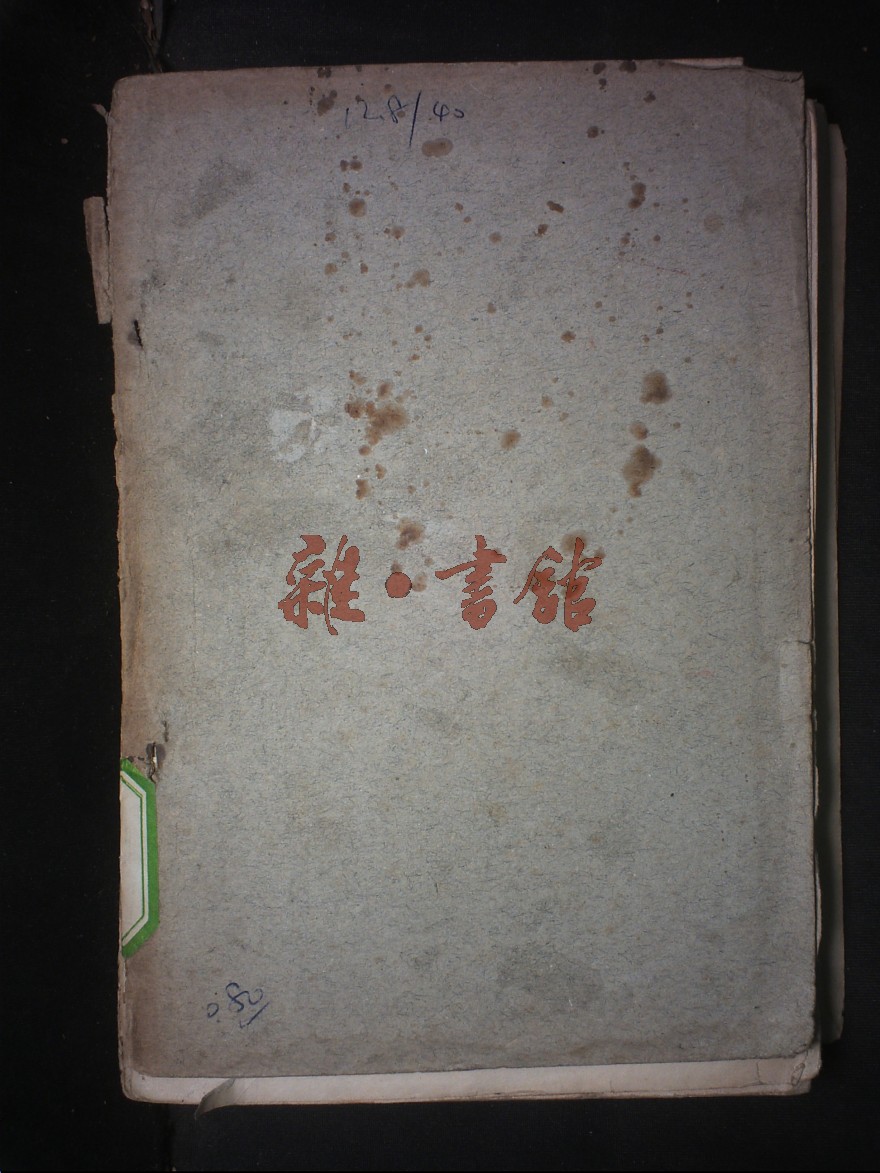 128/40
雜·書館
0.80